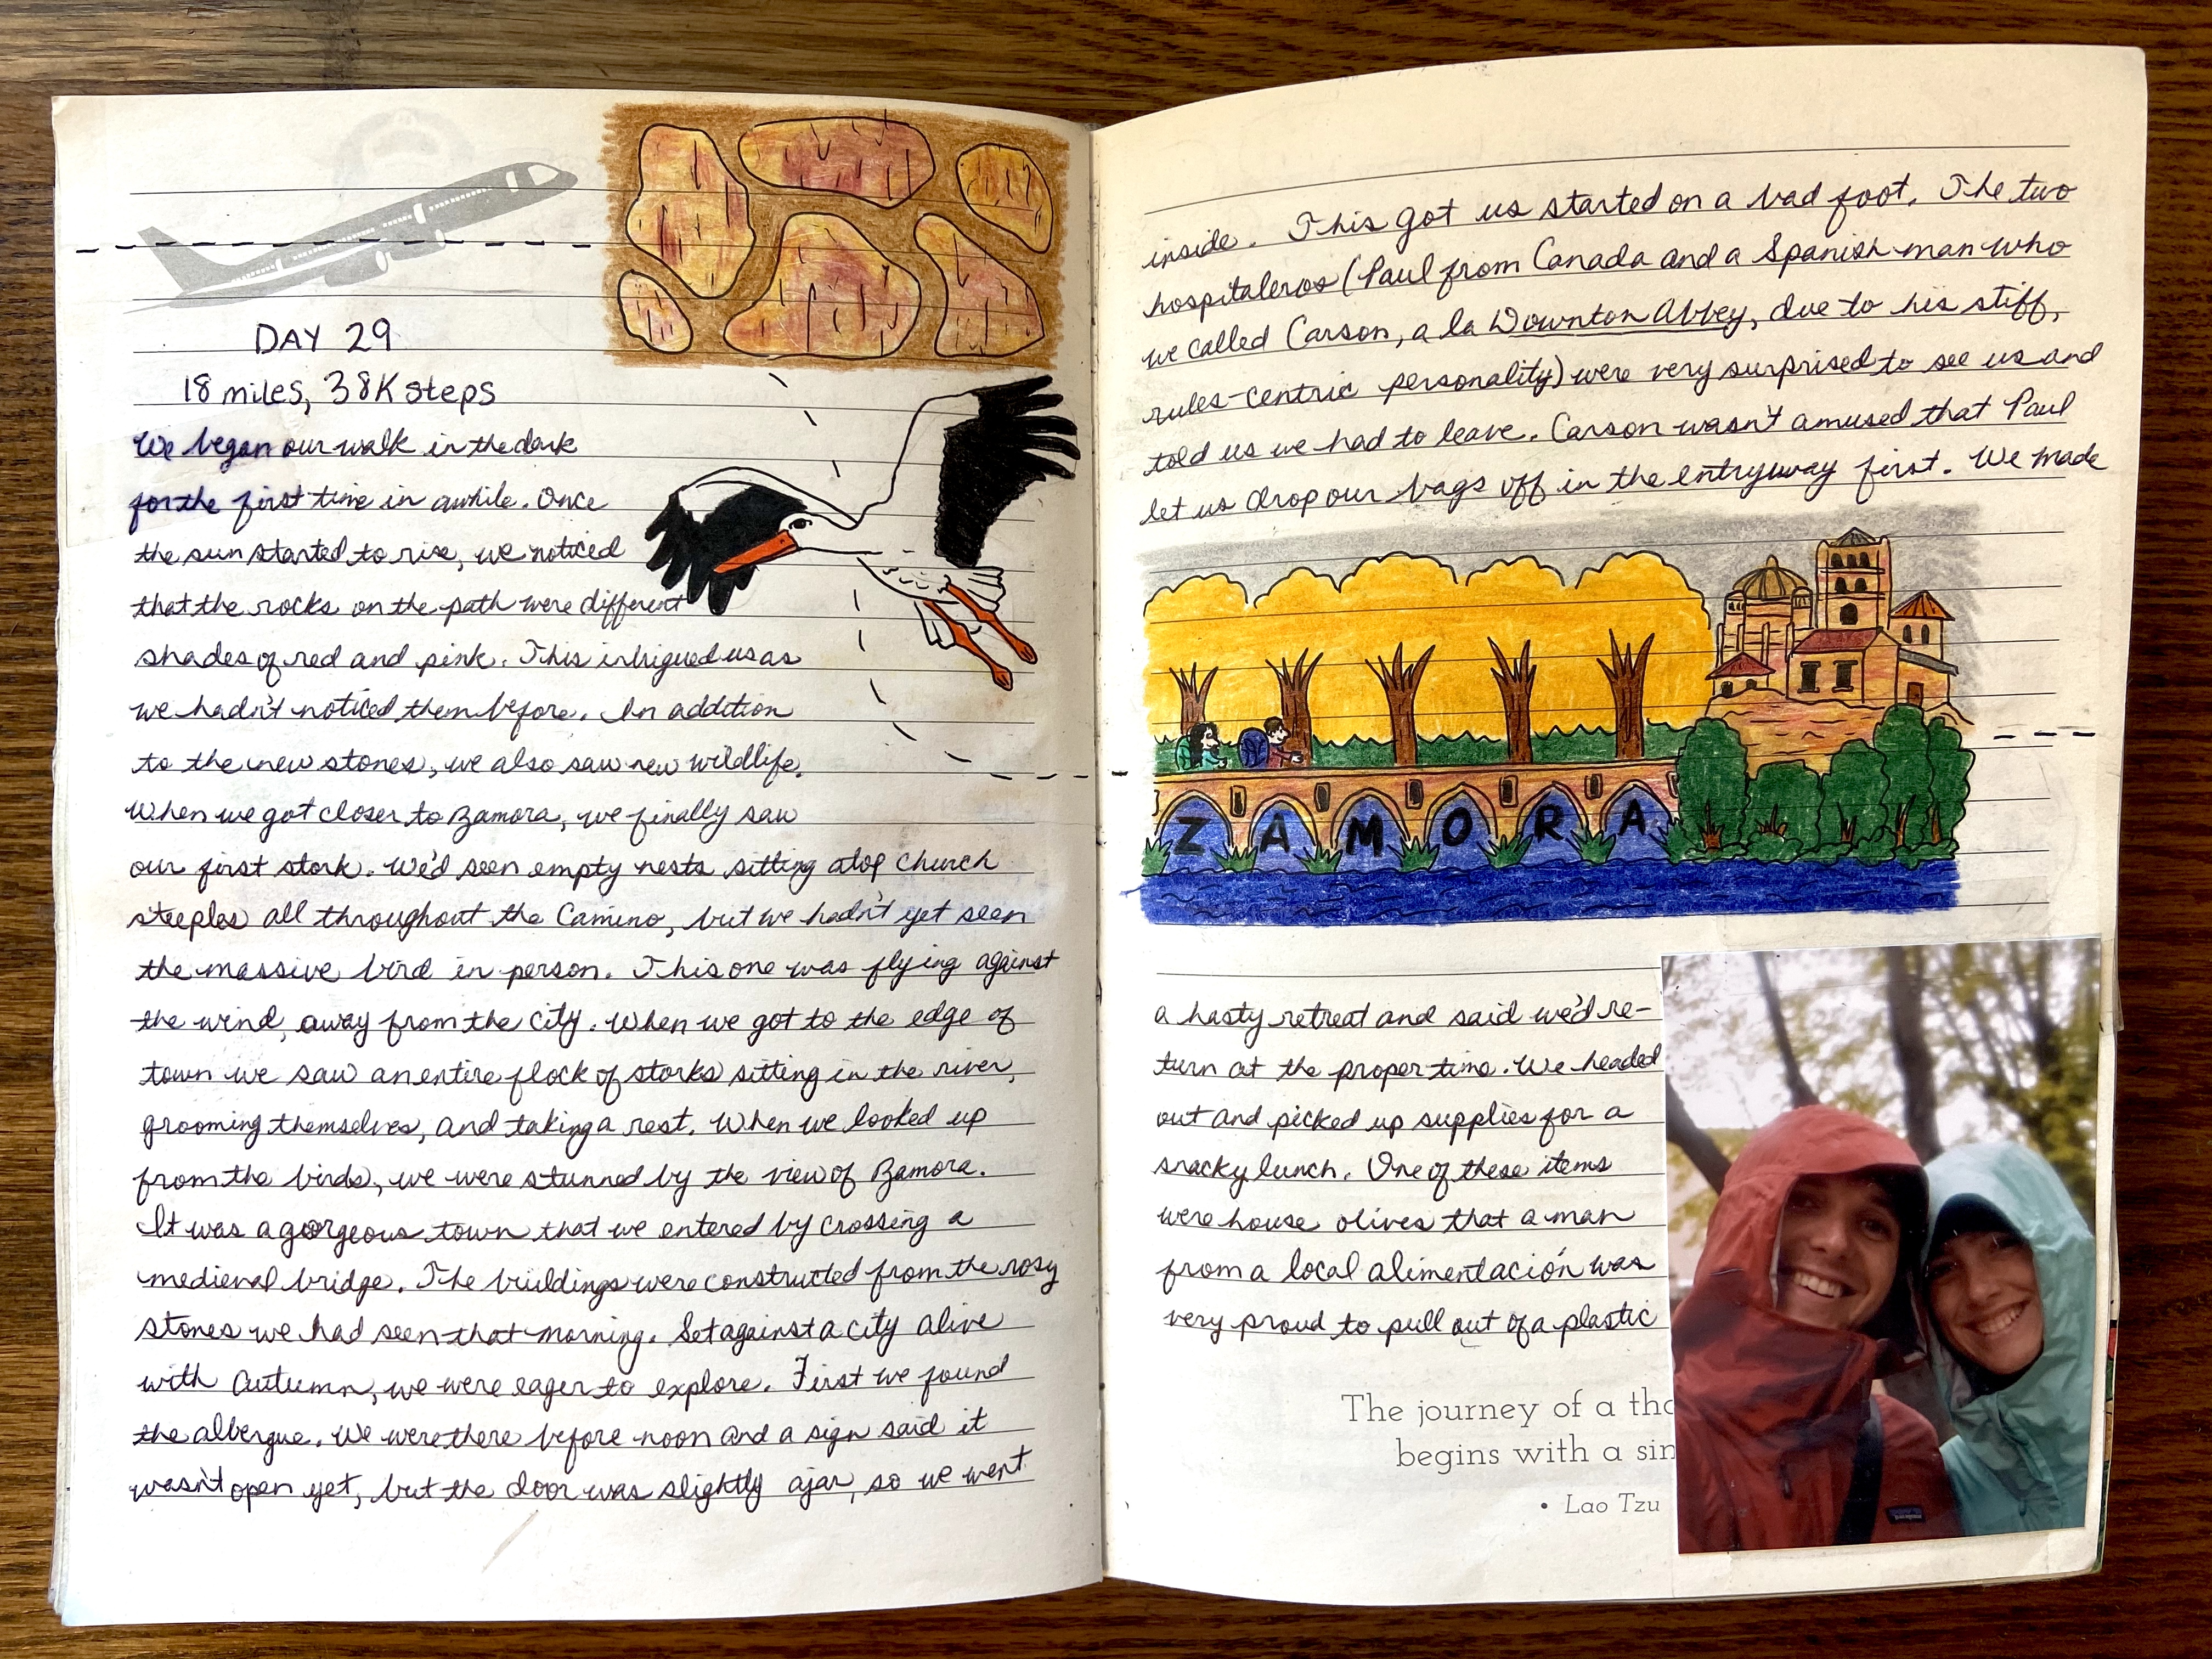 DAY 29
18 miles, 38K steps
We began our walk in the dark
for the first time in awhile. Once
the sun started to rise, we noticed
that the rocks on the path were different
shades of red and pink. This intrigued us as
we hadn't noticed them before. In addition
to the new stones, we also saw new wildlife.
When we got closer to Zamora, we finally saw
our first stork. We'd seen empty nests sitting atop church
steeples all throughout the Camino, but we hadn't yet seen
the massive bird in person. This one was flying against
the wind, away from the city. When we got to the edge of
town we saw an entire flock of storks sitting in the river,
grooming themselves, and taking a rest. When we looked up
from the birds, we were stunned by the view of Zamora.
It was a gorgeous town that we entered by crossing a
medieval bridge. The buildings were constructed from the rosy
stones we had seen that morning. Set against a city alive
with Autumn, we were eager to explore. First we found
the albergue. We were there before noon and a sign said it
wasn't open yet, but the door was slightly ajar, so we went
inside. This got us started on a bad foot. The two
hospitaleros (Paul from Canada and a Spanish man who
we called Carson, a la Downton Abbey, due to his stiff,
rules-centric personality) were very surprised to see us and
told us we had to leave. Carson wasn't amused that Paul
let us drop our bags off in the entryway first. We made
ZAMORA
a hasty retreat and said we'd re-
turn at the proper time. We headed
out and picked up supplies for a
snacky lunch. One of these items
were house olives that a man
from a local alimentación was
very proud to pull out of a plastic
The journey of a tho
begins with a sin
• Lao Tzu